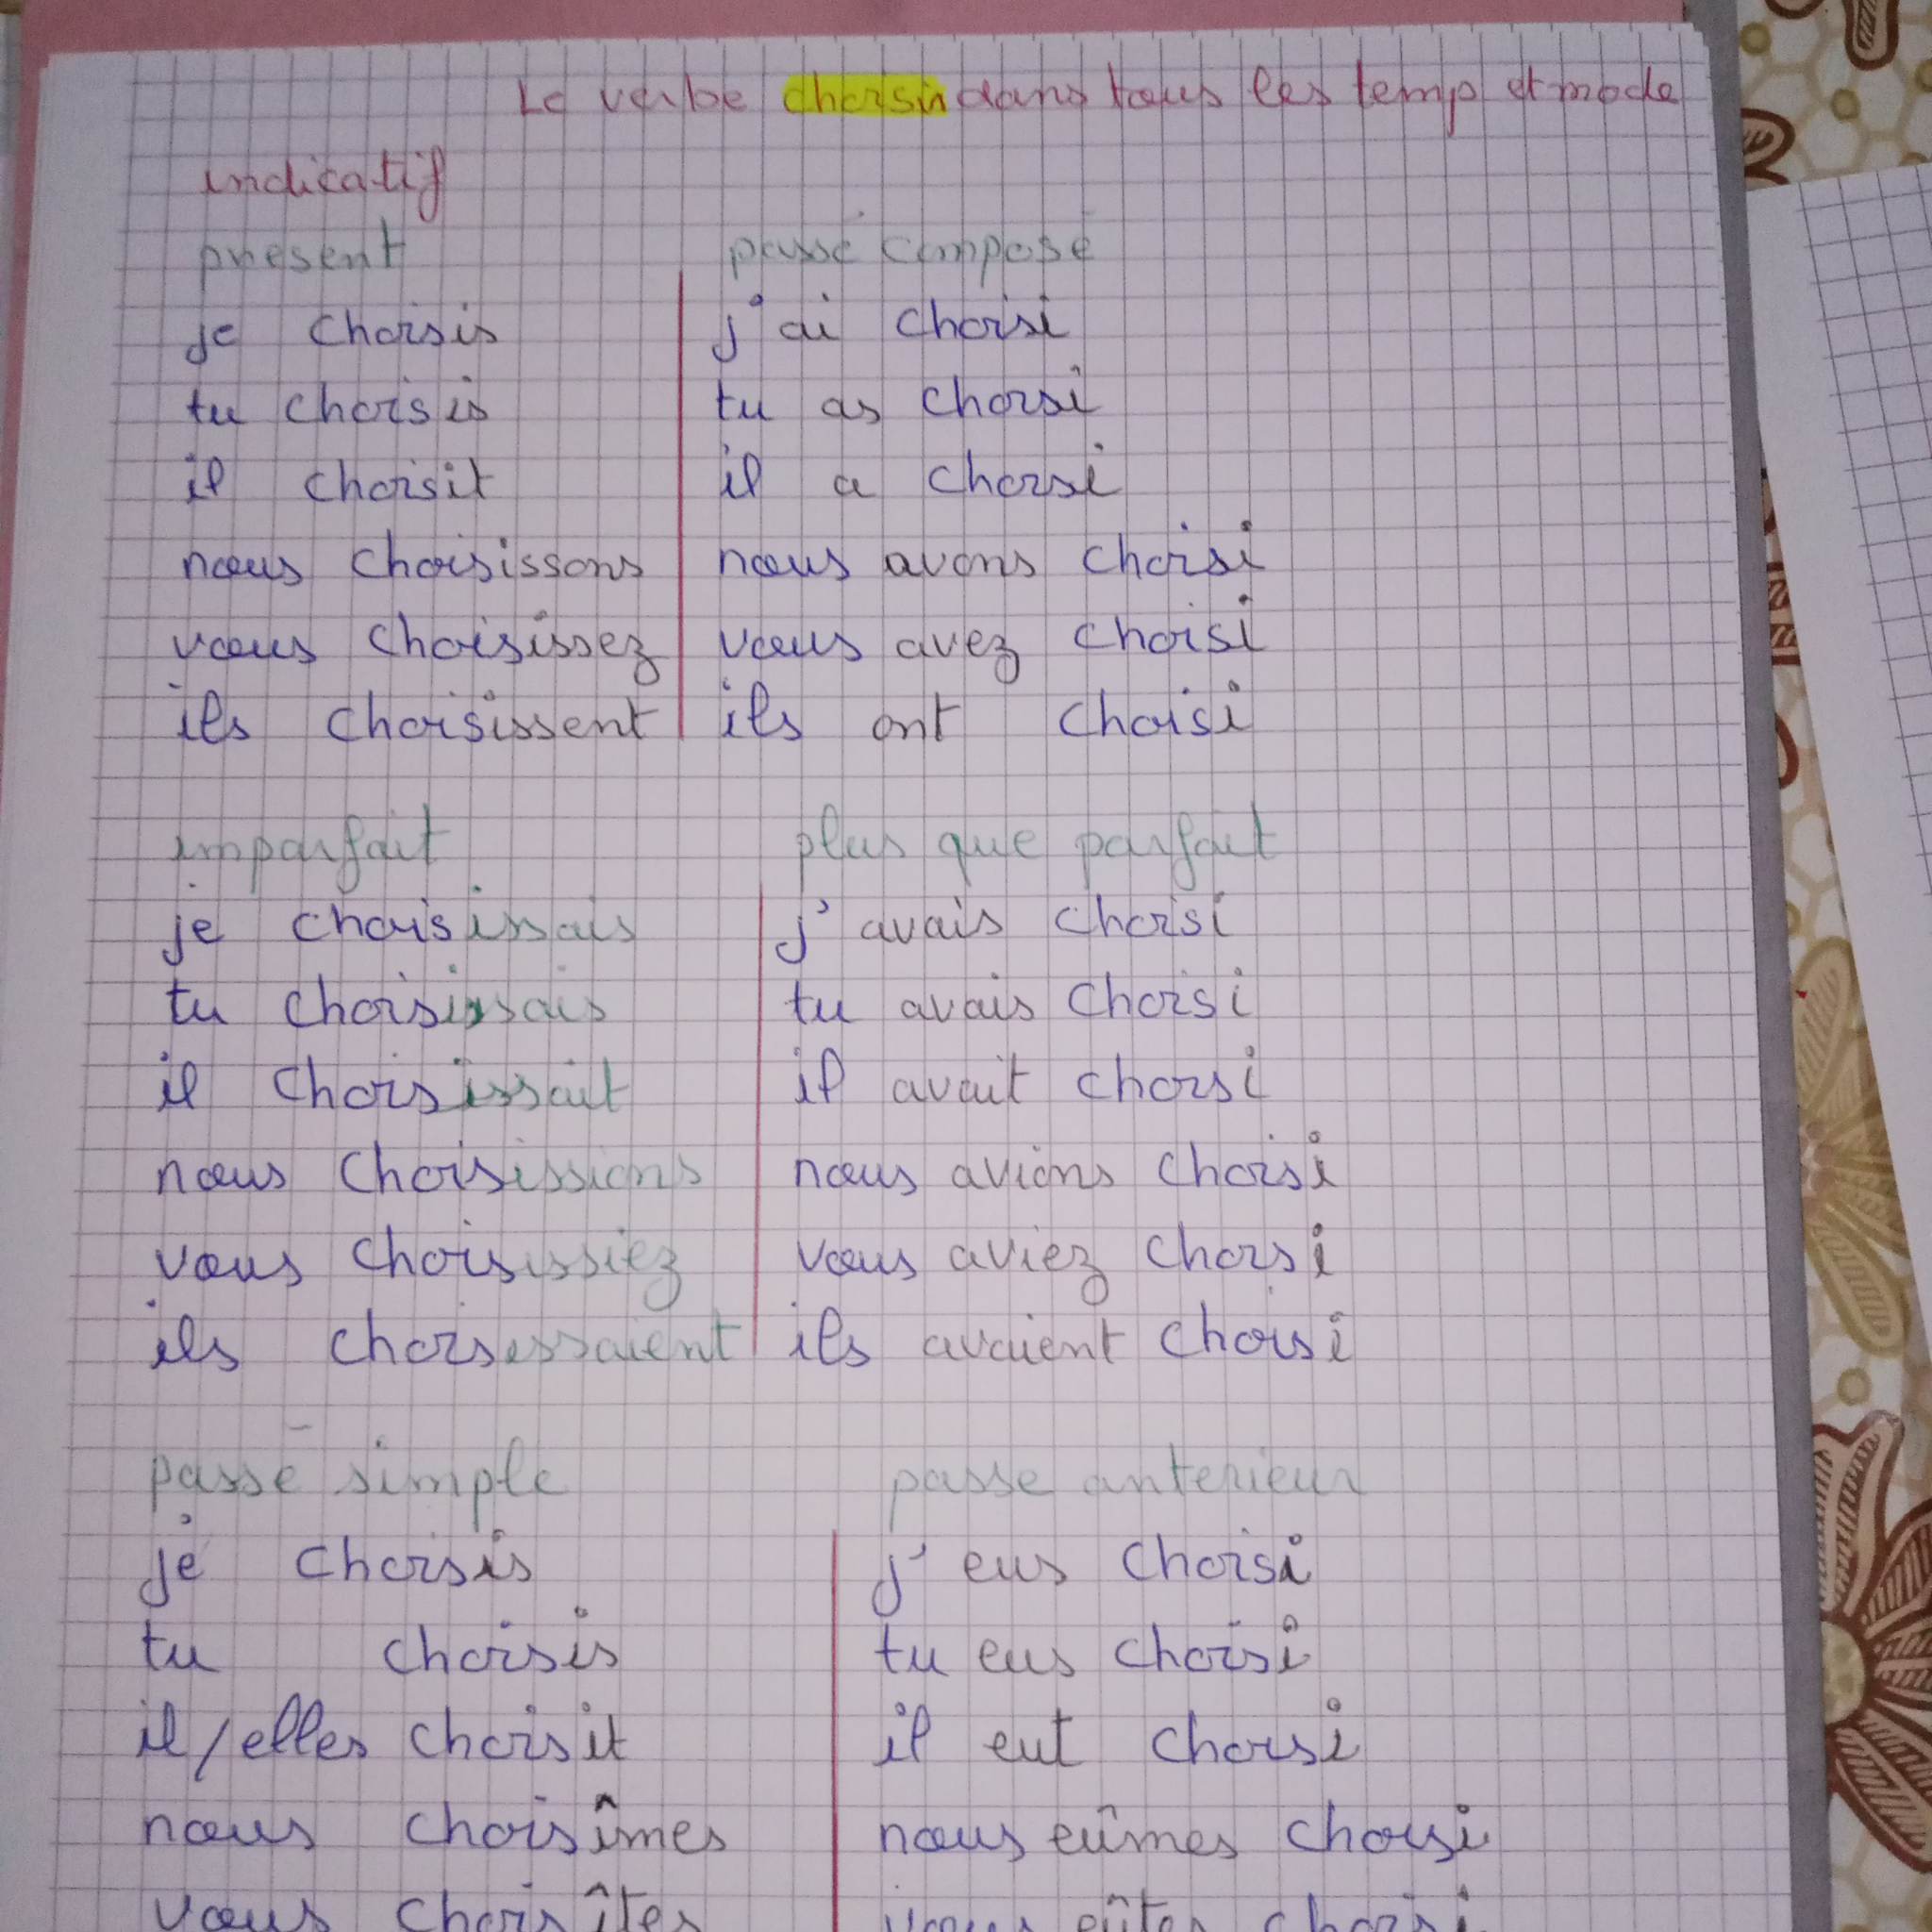 Le verbe choisir dans tous les temp et mode
indicatif
présent
passé composé
je choisis
j'ai choisi
tu choisis
tu as choisi
il choisit
il a choisi
nous choisissons
nous avons choisi
vous choisissez
vous avez choisi
ils choisissent
ils ont choisi
imparfait
plus que parfait
je choisissais
j'avais choisi
tu choisissais
tu avais choisi
il choisissait
il avait choisi
nous choisissions
nous avions choisi
vous choisissiez
vous aviez choisi
ils choisissaient
ils avaient choisi
passé simple
passe anterieur
je choisis
j'eus choisi
tu choisis
tu eus choisi
il/elles choisit
il eut choisi
nous choisîmes
nous eûmes choisi
vous choisîtes
vous eûtes choisi